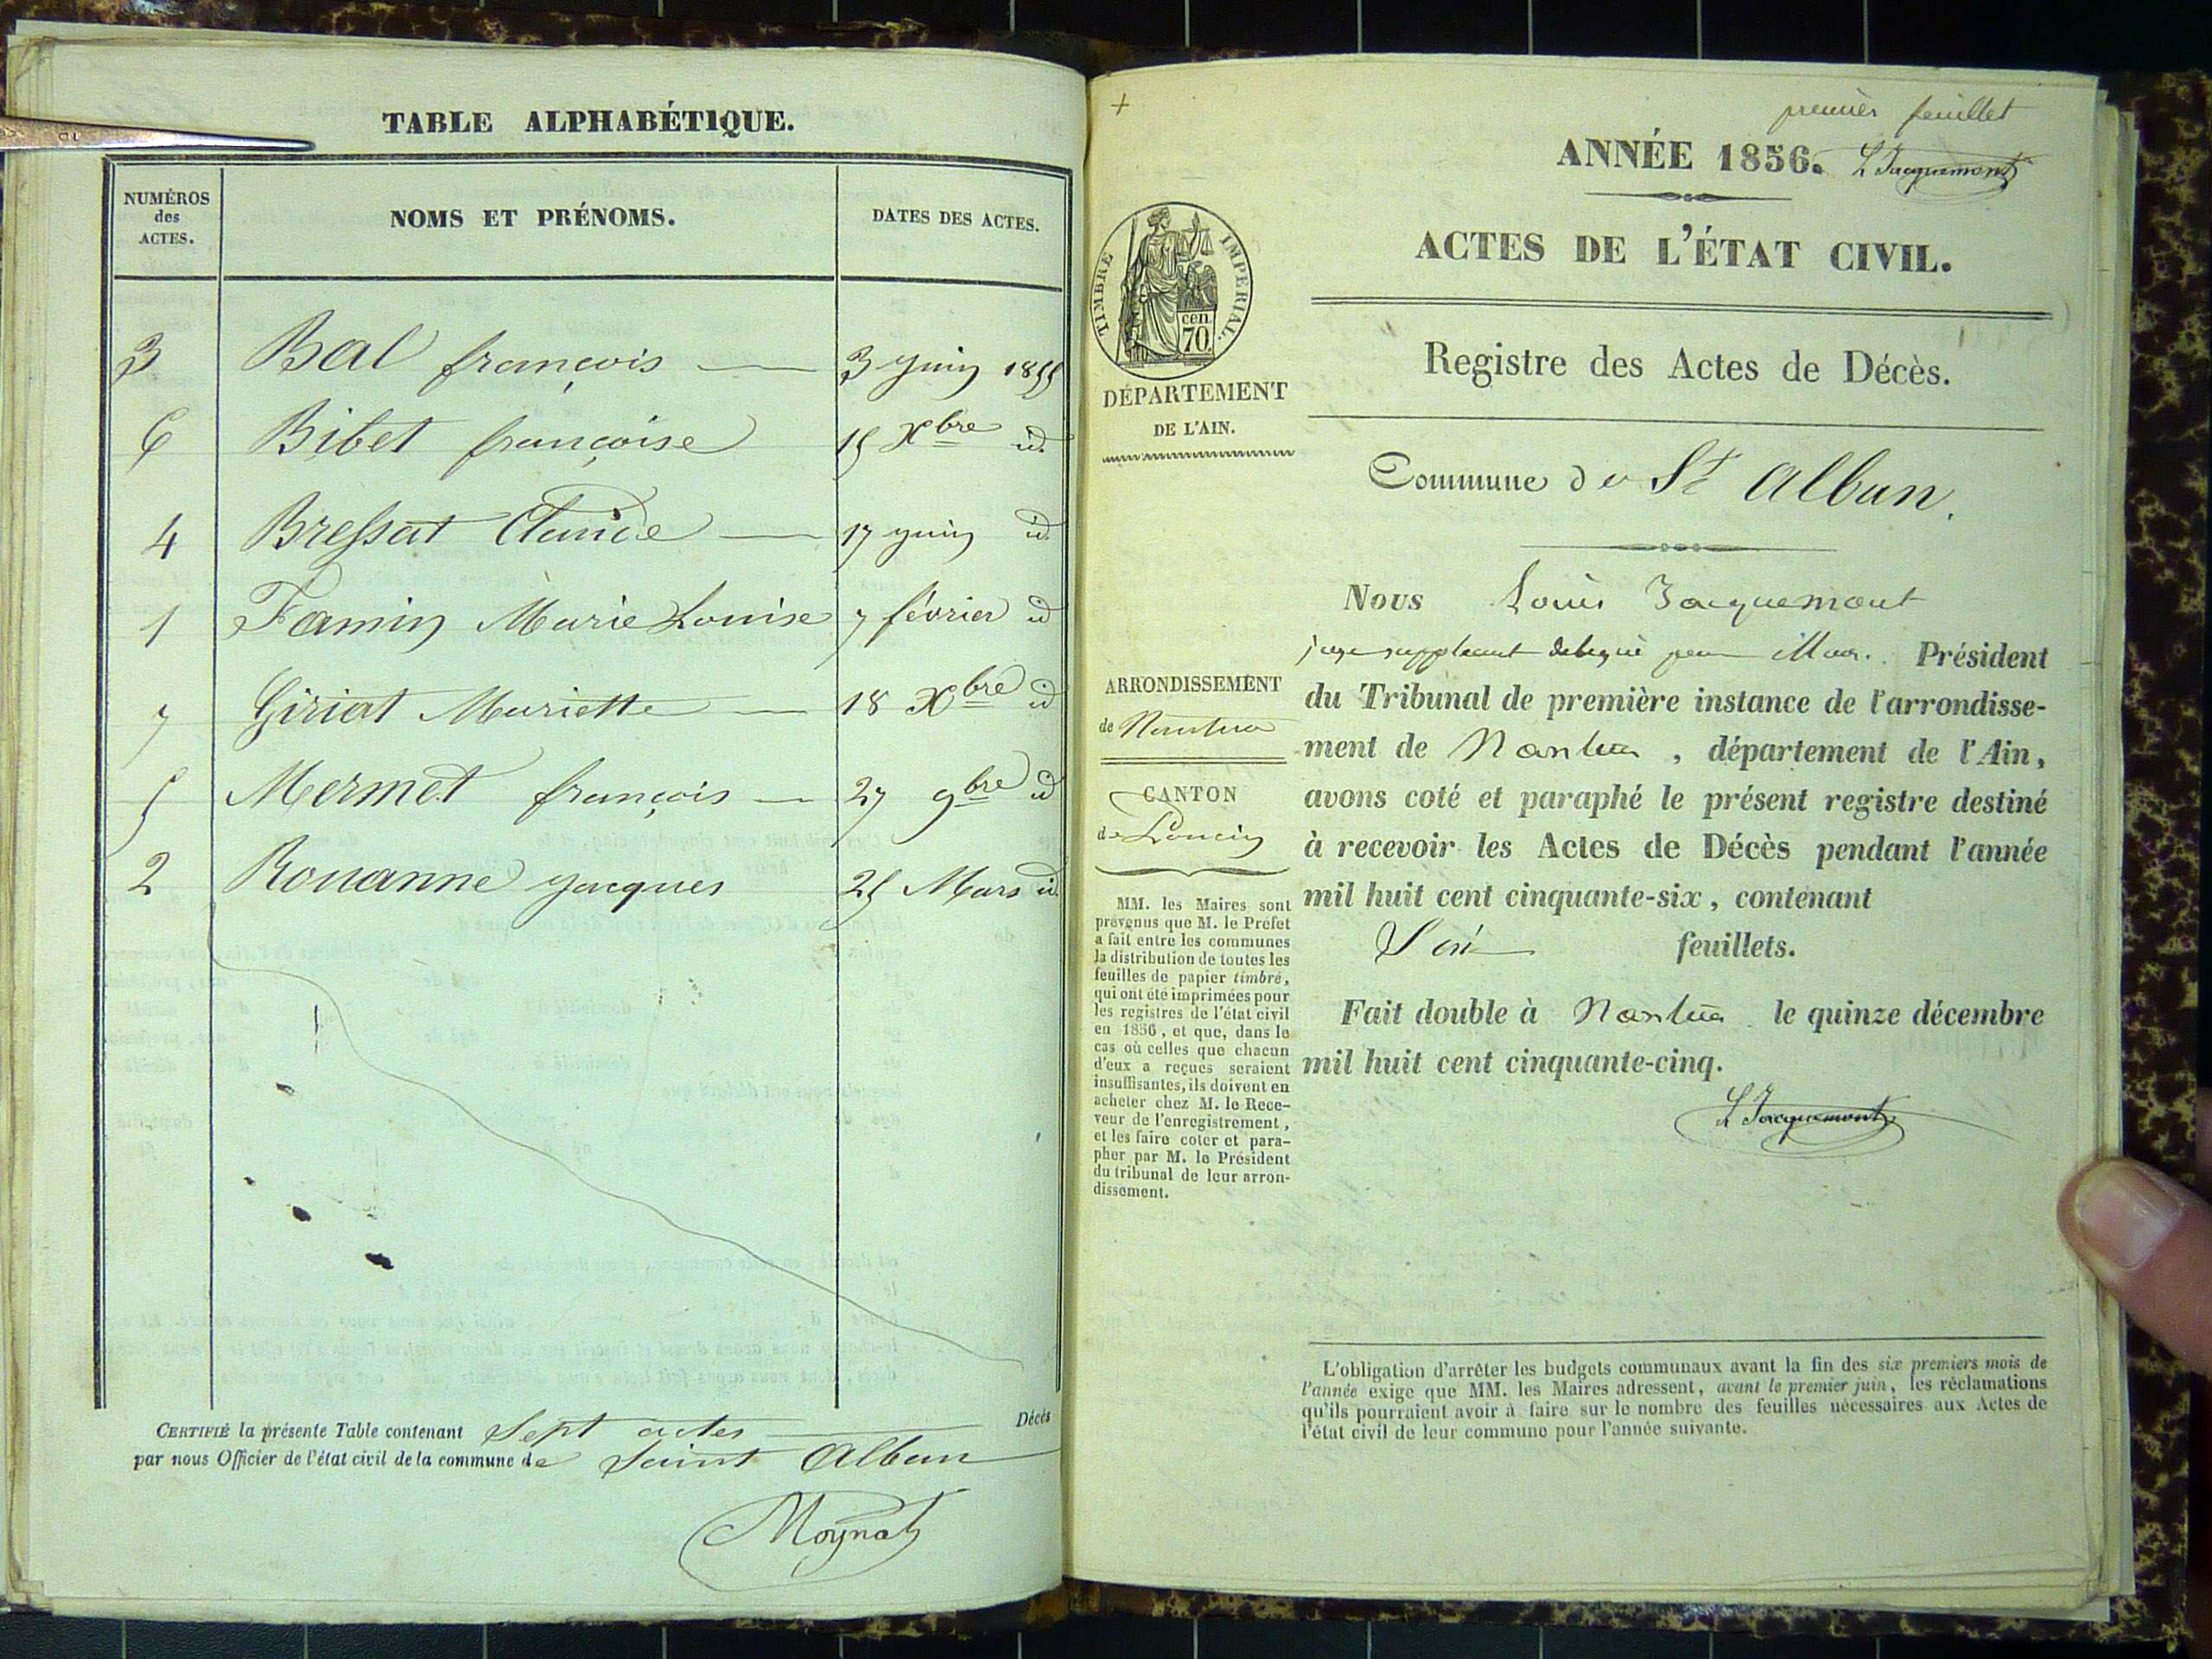 TABLE ALPHABÉTIQUE.
NUMÉROS des ACTES.
NOMS ET PRÉNOMS.
DATES DES ACTES.
3 Bal françois 3 juin 1855
6 Bibet françoise 15 Xbre id
4 Bressat Claude 17 juin id
1 Famin Marie Louise 7 février id
7 Giriat Mariette 18 Xbre id
5 Mermet françois 27 9bre id
2 Rouanne jacques 25 Mars id
CERTIFIÉ la présente Table contenant Sept actes Décès
par nous Officier de l'état civil de la commune de Saint Alban
Moynat
premier feuillet
ANNÉE 1856. L Jacquemont
ACTES DE L'ÉTAT CIVIL.
TIMBRE IMPERIAL.
cen.
70.
DÉPARTEMENT
DE L'AIN.
Registre des Actes de Décès.
Commune de St Alban.
ARRONDISSEMENT
de Nantua
CANTON
de Poncin
MM. les Maires sont
prévenus que M. le Préfet
a fait entre les communes
la distribution de toutes les
feuilles de papier timbré,
qui ont été imprimées pour
les registres de l'état civil
en 1856, et que, dans le
cas où celles que chacun
d'eux a reçues seraient
insuffisantes, ils doivent en
acheter chez M. le Rece-
veur de l'enregistrement,
et les faire coter et para-
pher par M. le Président
du tribunal de leur arron-
dissement.
Nous Louis Jacquemont
juge suppléant délégué par Mr. Président
du Tribunal de première instance de l'arrondisse-
ment de Nantua, département de l'Ain,
avons coté et paraphé le présent registre destiné
à recevoir les Actes de Décès pendant l'année
mil huit cent cinquante-six, contenant
feuillets.
Fait double à Nantua le quinze décembre
mil huit cent cinquante-cinq.
L Jacquemont
L'obligation d'arrêter les budgets communaux avant la fin des six premiers mois de
l'année exige que MM. les Maires adressent, avant le premier juin, les réclamations
qu'ils pourraient avoir à faire sur le nombre des feuilles nécessaires aux Actes de
l'état civil de leur commune pour l'année suivante.